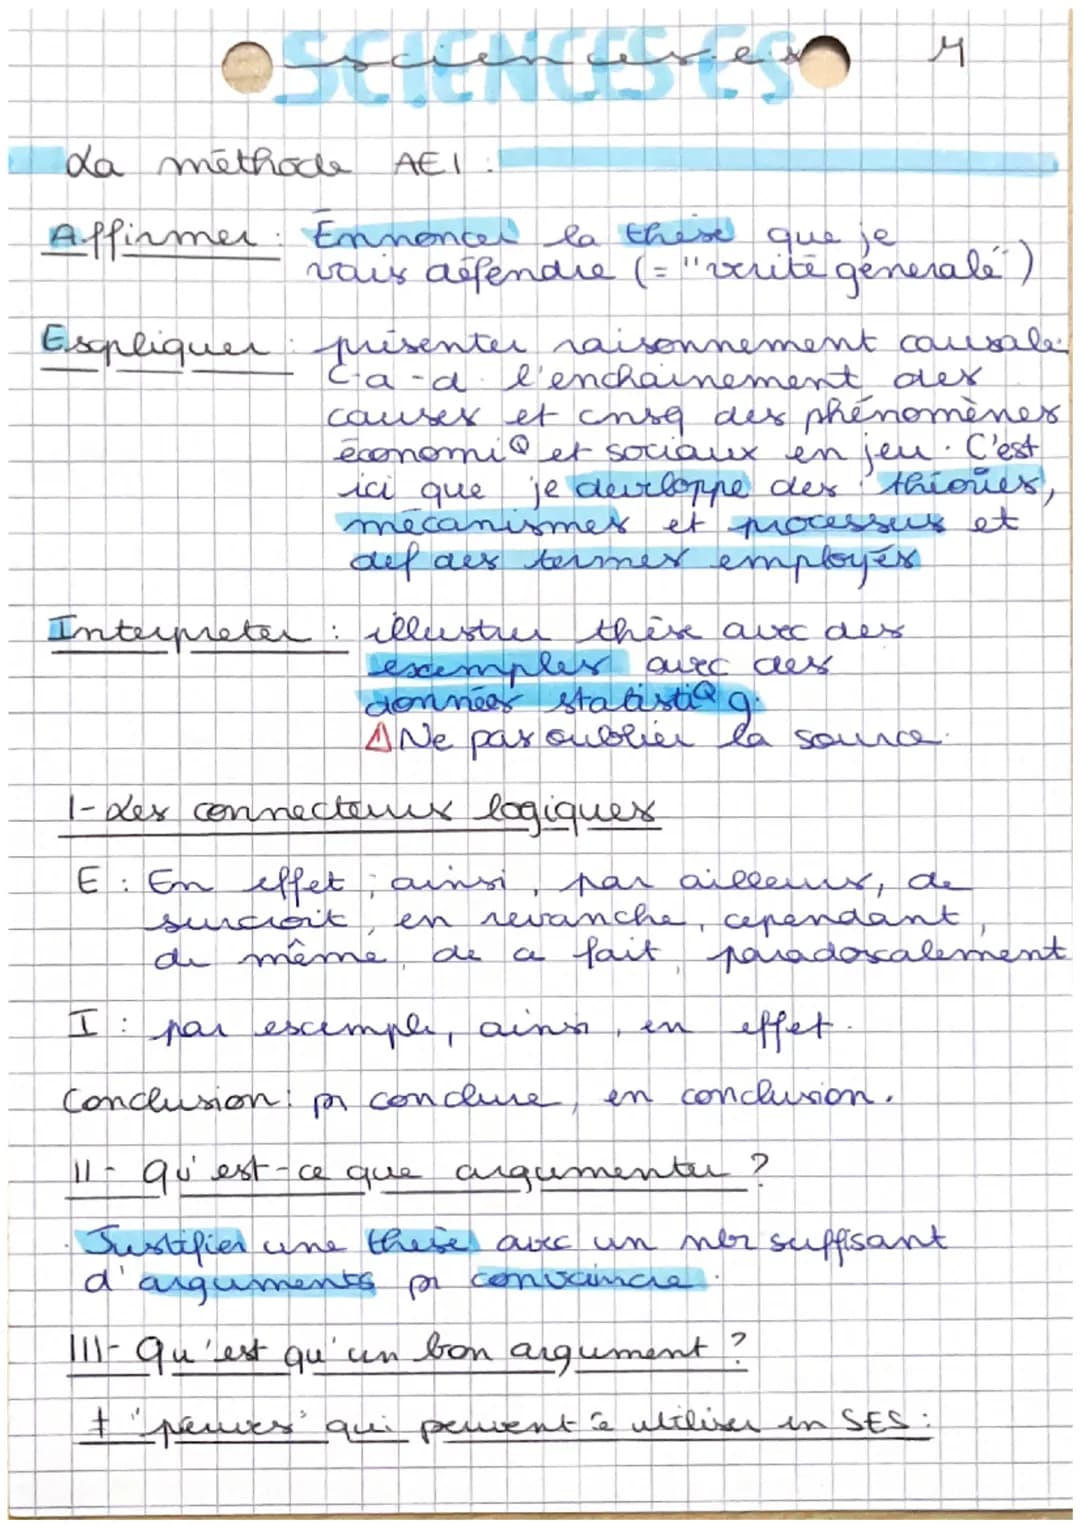 SCIENCES ES
sciences es
La méthode AEI :
Affirmer : Ennoncer la thèse que je
vais défendre (= "vérité générale")
Escpliquer : présenter raisonnement causale
c-a-d l'enchaînement des
causes et cnsq des phénomènes
économiQ et sociaux en jeu. C'est
ici que je développe des théories,
mécanismes et processus et
def des termes employés
Interpreter : illustrer thèse avec des
exemples avec des
données statistiQ g.
⚠ Ne pas oublier la source.
I- Les connecteurs logiques
E : En effet ; ainsi, par ailleurs, de
surcroit, en revanche, cependant,
de même, de ce fait, paradoxalement
I : par exemple, ainsi, en effet.
Conclusion : pr conclure, en conclusion.
II- Qu'est-ce que argumenter ?
Justifier une thèse avec un nbr suffisant
d'arguments pr convaincre.
III- Qu'est qu'un bon argument ?
≠ "preuves" qui peuvent ê utiliser en SES :